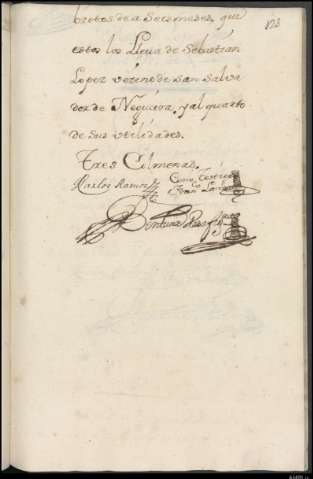 brotos de a Seis meses, que
estos los Lleva de Sebastian
Lopez vezino de san salva
dor de Neguera, y al quarto
de sus utilidades.
Tres Colmenas
Carlos Ramos
Como testigo
Fran
Ventura